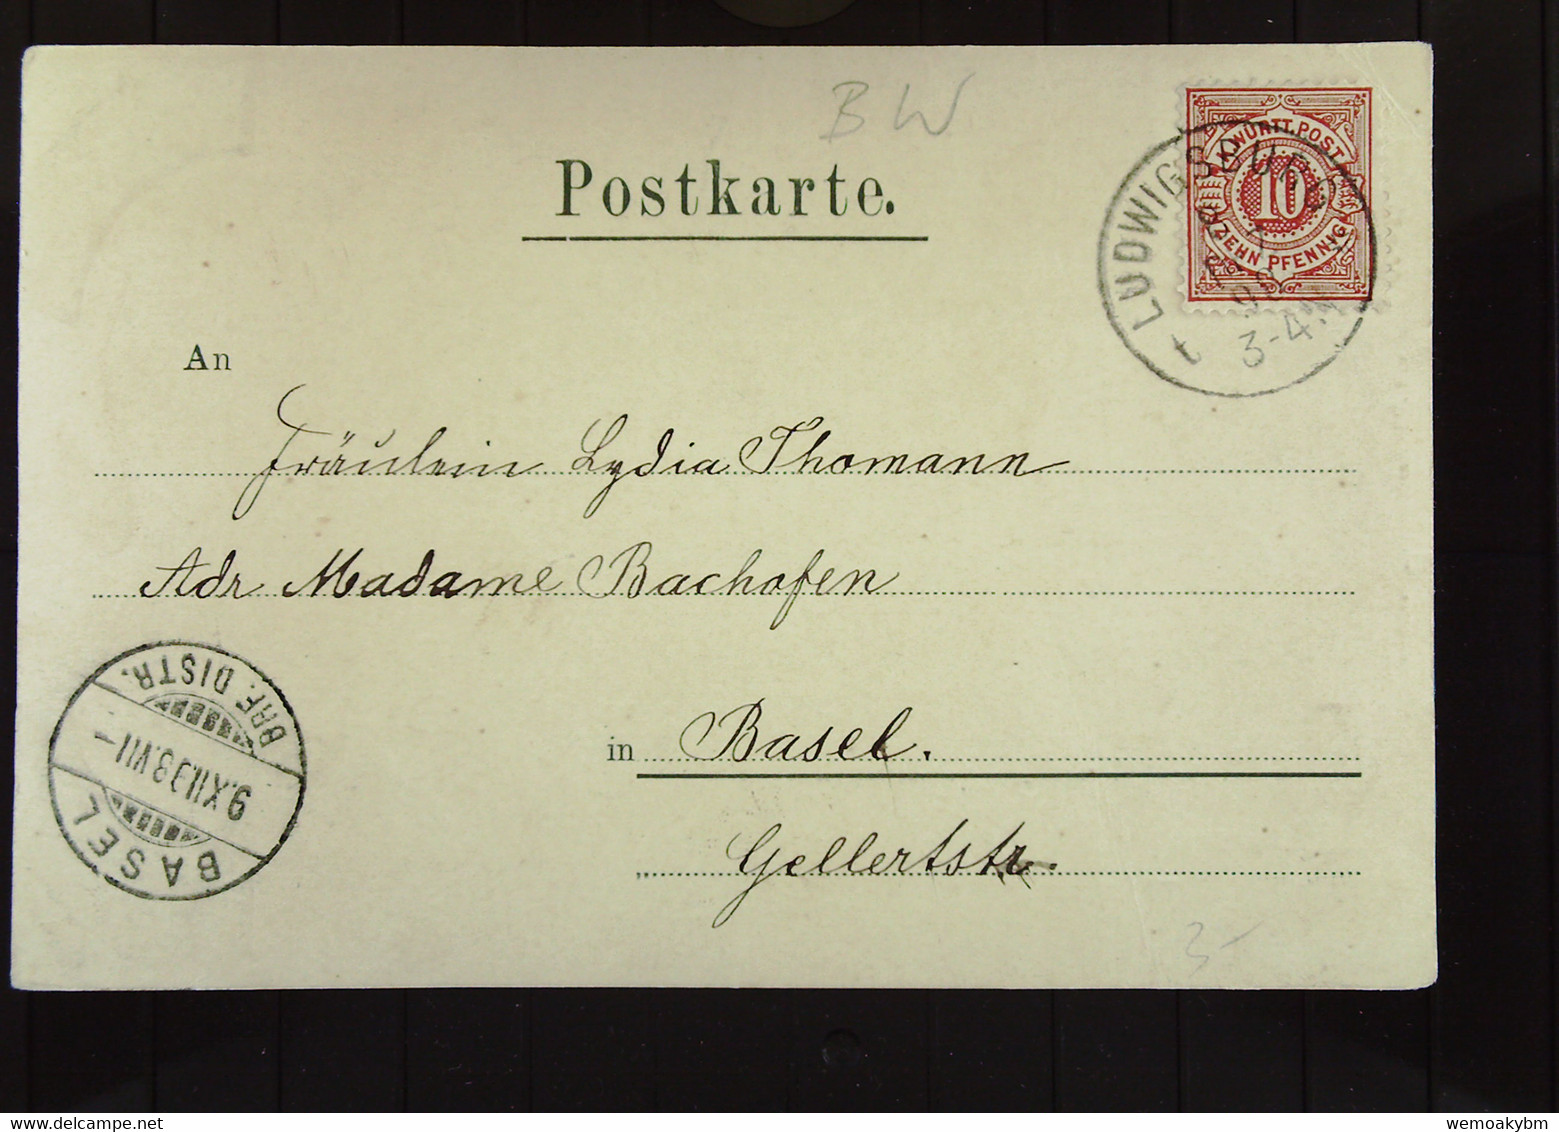 BW
Postkarte.
K.WÜRTT.POST
10
ZEHN PFENNIG
LUDWIGSBURG
3-4
An
Fräulein Lydia Thomann
Adr Madame Bachofen
in Basel.
Gellertstr.
BRF. DISTR.
9.XII.98.VII-
BASEL
3-
wemoakybm